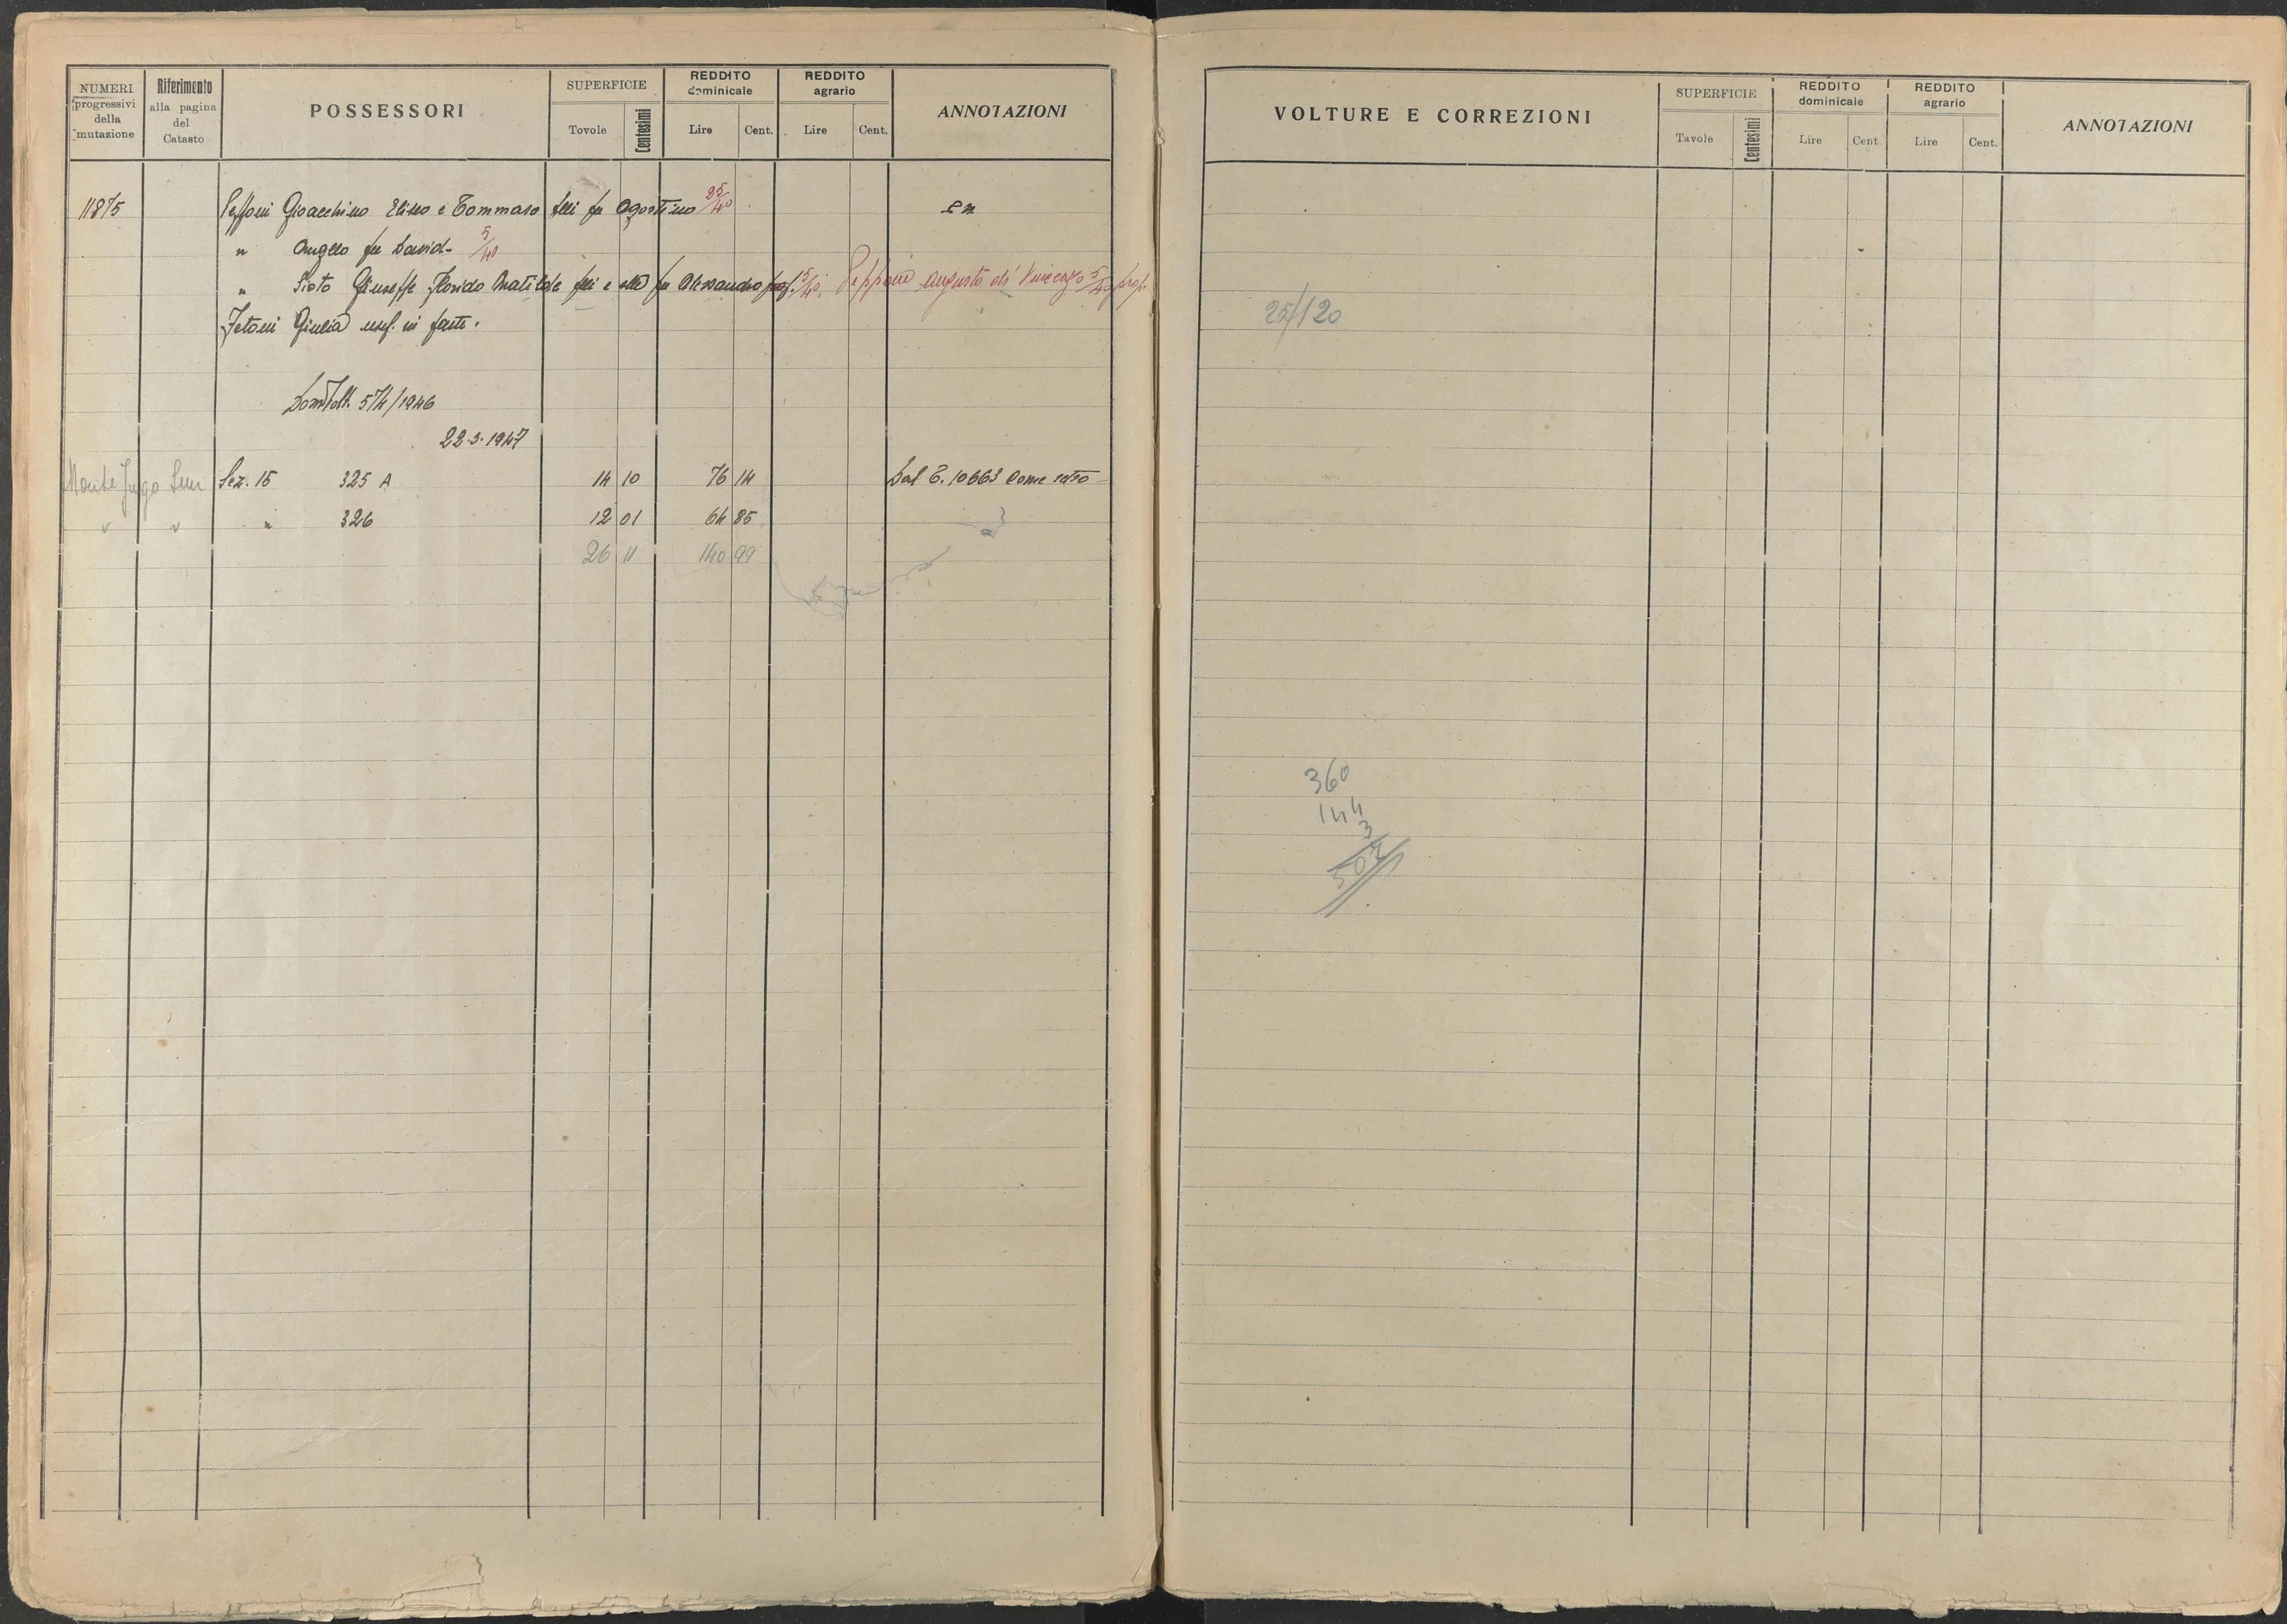 NUMERI progressivi della mutazione
Riferimento alla pagina del Catasto
POSSESSORI
SUPERFICIE
Tavole Centesimi
REDDITO dominicale
Lire Cent.
REDDITO agrario
Lire Cent.
ANNOTAZIONI
11875 Peffoni Gioacchino Eliseo e Tommaso flli fu Agostino 25/40
" Angelo fu David 5/40
" Sisto Giuseppe Florido Matilde flli e slla fu Alessandro prop. 5/40. Pepponi Augusto di Vincenzo 5/40 prop.
Fetoni Giulia usuf. in parte.
574/1946
22.3.1947
Monte Jugo Sez. 15 325 A 14 10 76 14 Dal C. 10663 Come sopra
" " " 326 12 01 64 85
26 11 140 99
VOLTURE E CORREZIONI
SUPERFICIE
Tavole Centesimi
REDDITO dominicale
Lire Cent.
REDDITO agrario
Lire Cent.
ANNOTAZIONI
25/120
360
144
3
507